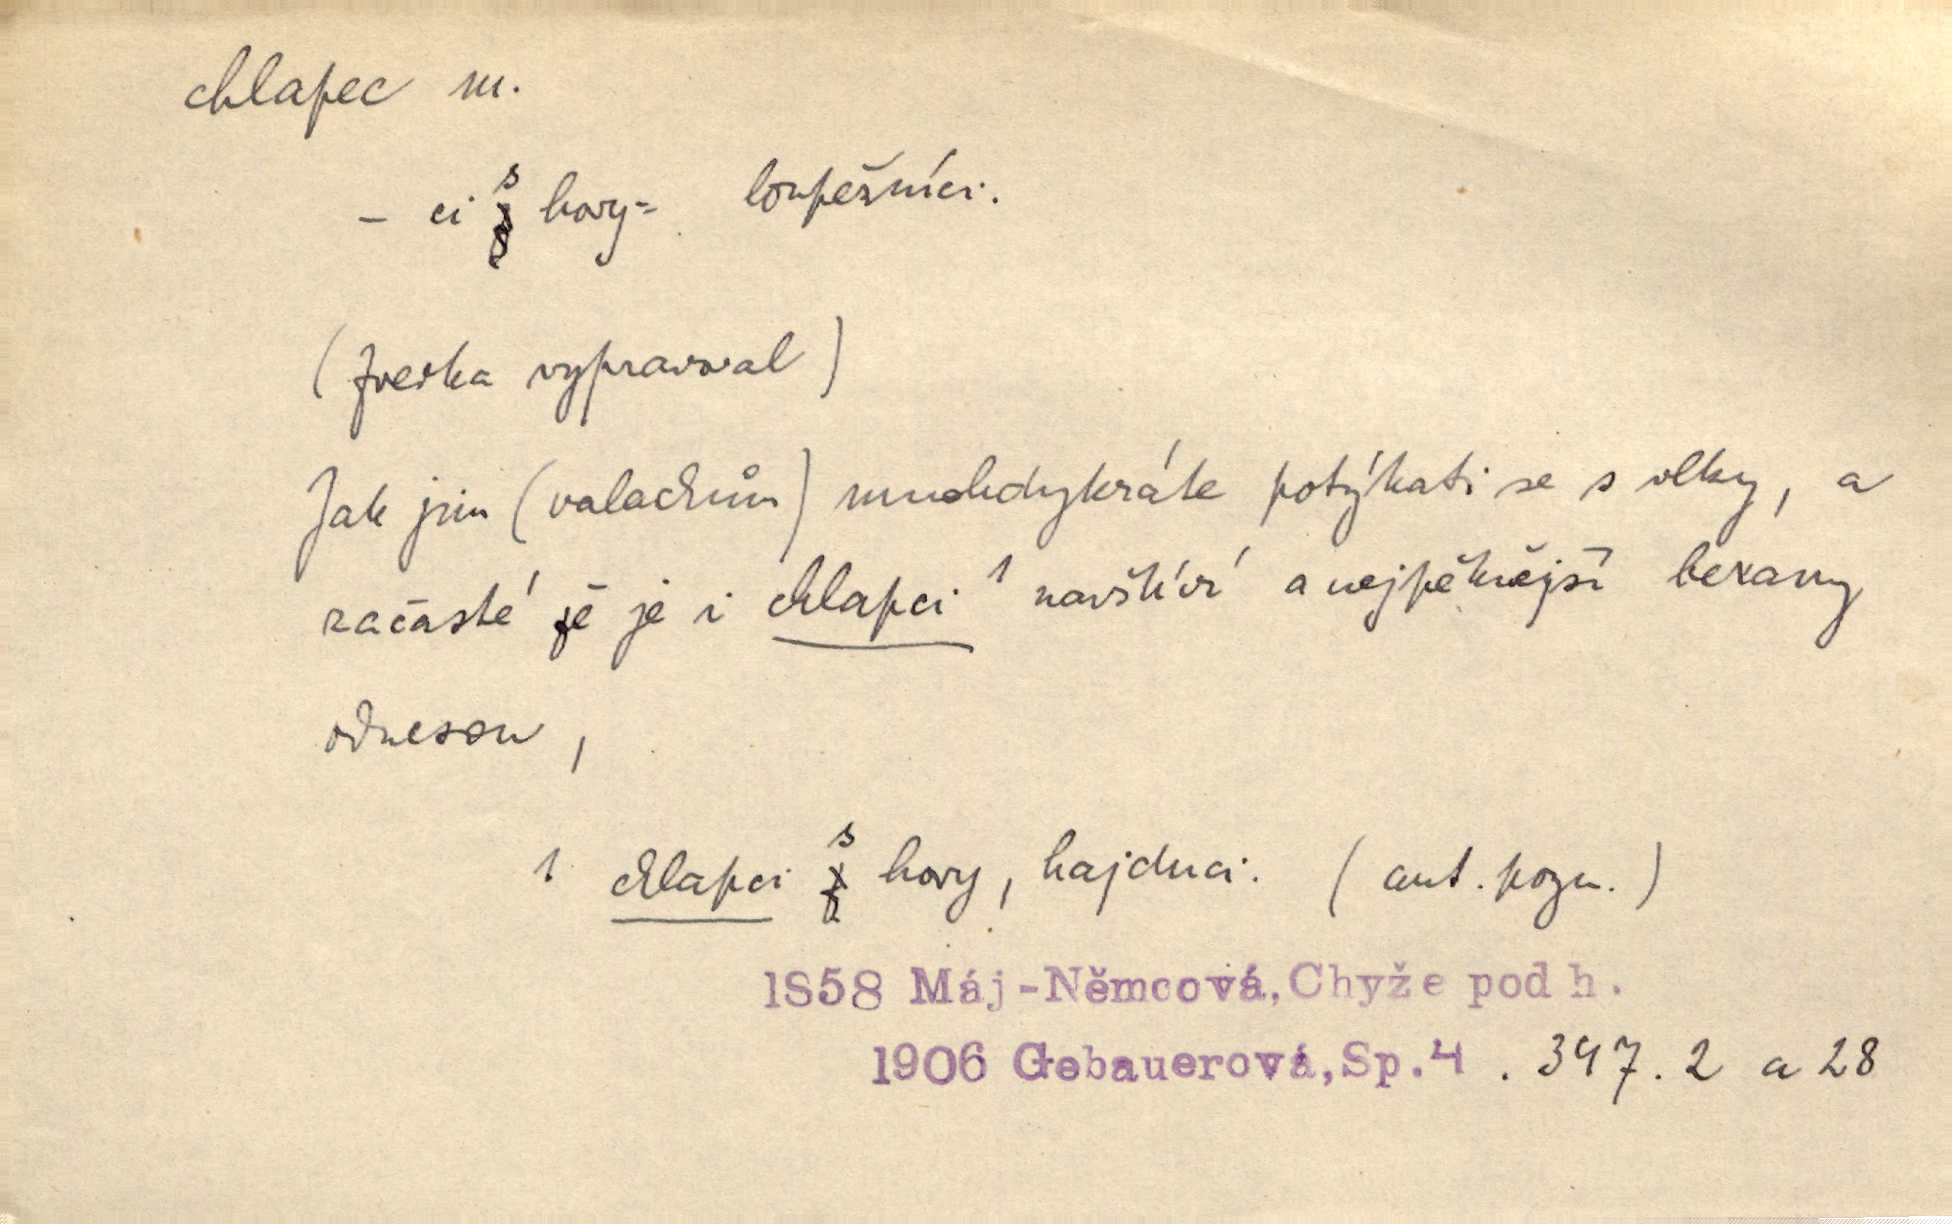 chlapec m.
- ci s hory = loupežníci.
(Jverka vypravoval)
Jak jim (valachům) mnohdykráte potýkati se s vlky, a
začasté je i chlapci ¹ navštíví a nejpěknější berany
odnesou,
1 chlapci s hory, hajduci. (aut. pozn.)
1858 Máj-Němcová, Chyže pod h.
1906 Gebauerová, Sp.4 . 397. 2 a 28